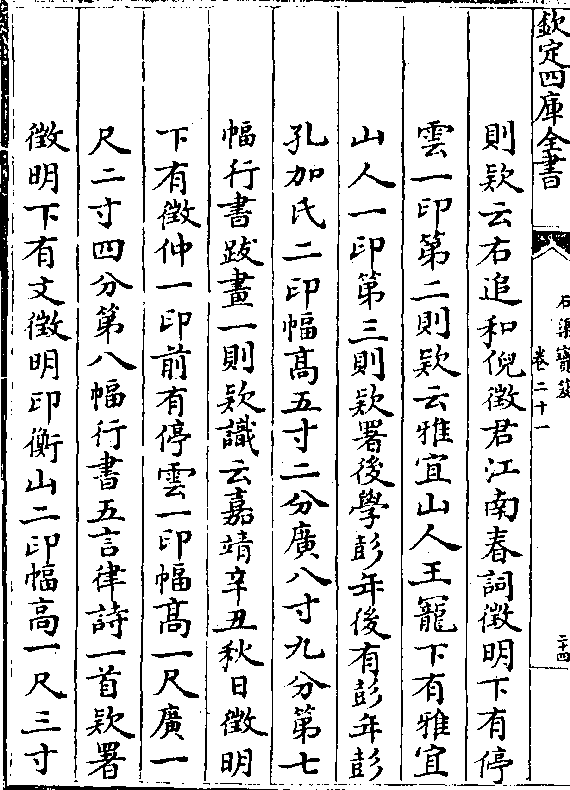 欽定四庫全書
石渠寳笈
卷二十一
二十四
則欵云右追和倪徵君江南春詞徵明下有停
雲一印第二則欵云雅宜山人王寵下有雅宜
山人一印第三則欵署後學彭年後有彭年彭
孔加氏二印幅髙五寸二分廣八寸九分第七
幅行書跋畫一則欵識云嘉靖辛丑秋日徵明
下有徵仲一印前有停雲一印幅髙一尺廣一
尺二寸四分第八幅行書五言律詩一首欵署
徵明下有文徵明印衡山二印幅高一尺三寸